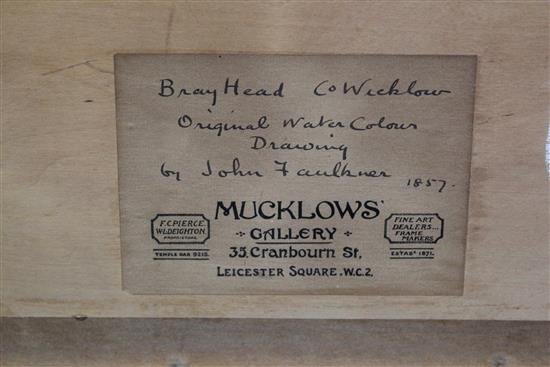 Bray Head Co Wicklow
Original Water Colour
Drawing
by John Faulkner 1857.
MUCKLOWS'
GALLERY
35. Cranbourn St,
LEICESTER SQUARE. W.C.2.
F.C. PIERCE.
W.L. DEIGHTON.
PROPRIETORS
TEMPLE BAR 9215.
FINE ART
DEALERS...
FRAME
MAKERS
ESTABD 1871.